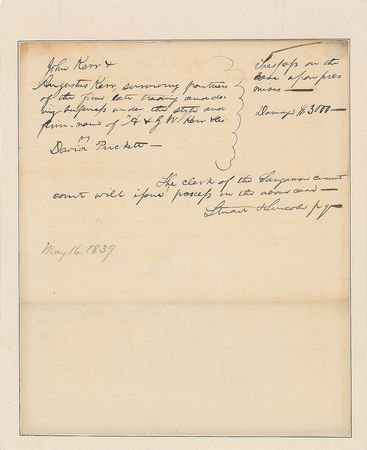 John Kerr &
Augustus Kerr, surviving partners
of the firm late trading and do-
ing business under the style and
firm-name of "A & G. W. Kerr & Co.
vs
David Prickett —
Trespass on the
case upon pro-
mises —
Damage $3000 —
The clerk of the Sangamon circuit
court will issue process in the above case —
Stuart & Lincoln p.q.
May 16, 1839